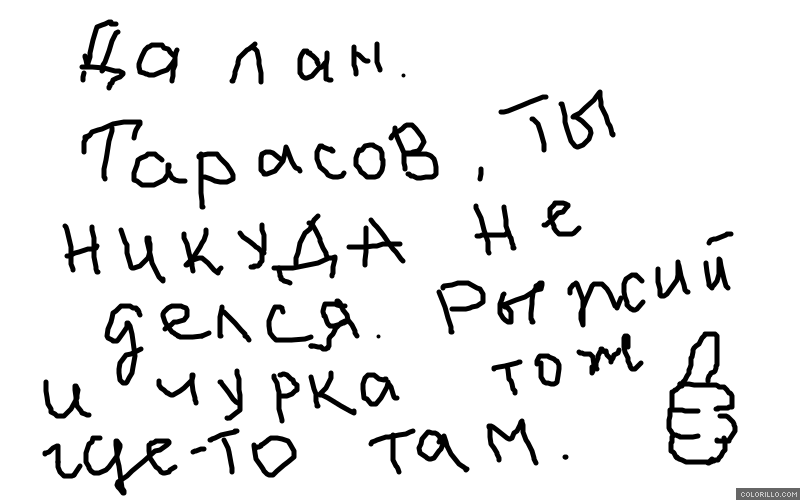 Да лан.
Тарасов, ты
никуда не
делся. Рыжий
и чурка тож
где-то там.
COLORILLO.COM